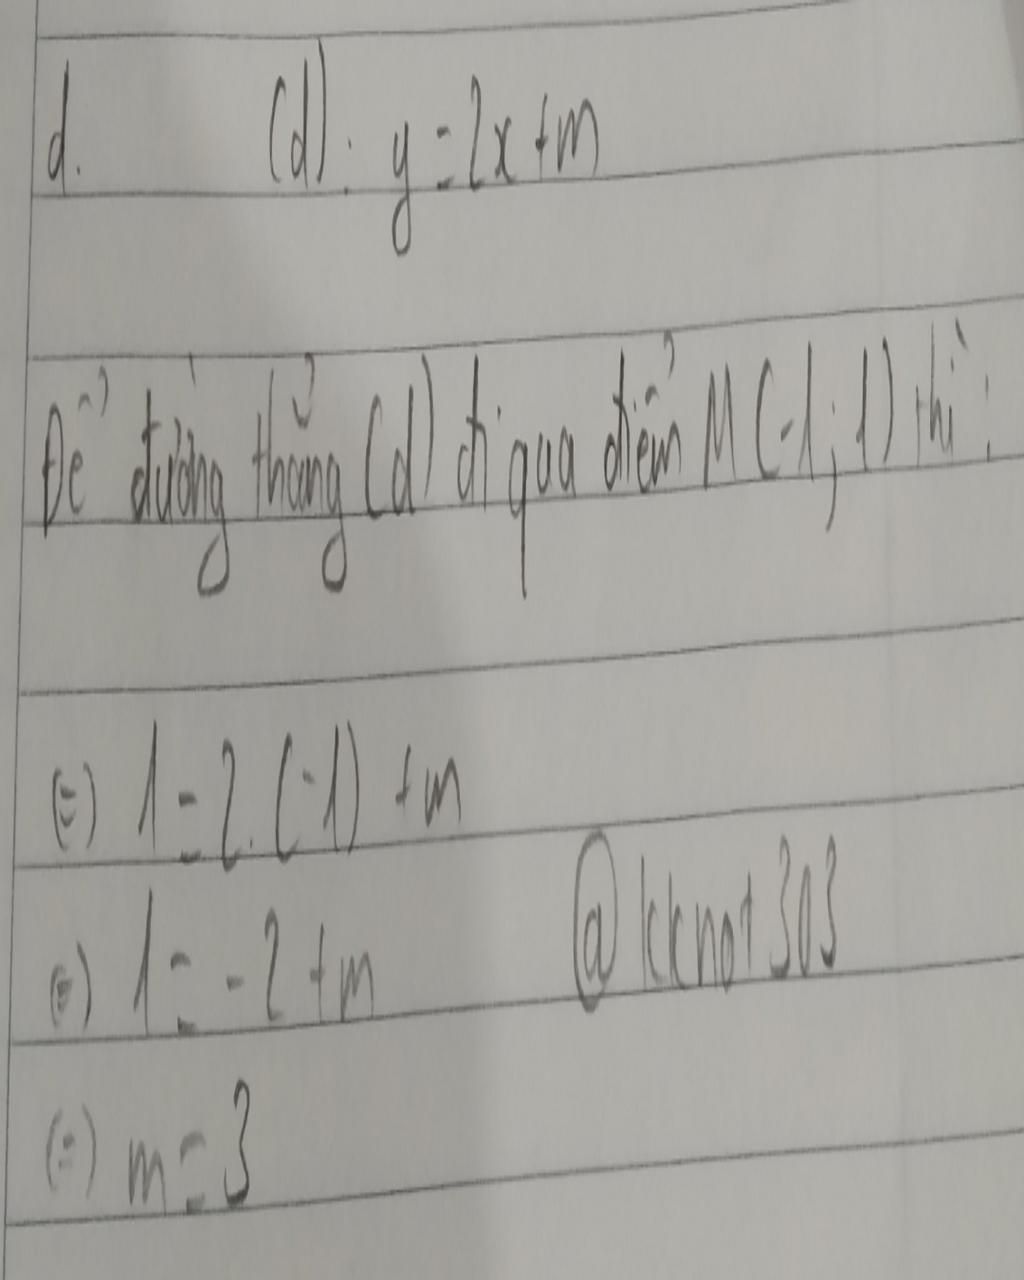 d. (d): y = 2x + m
Để đường thẳng (d) đi qua điểm M (-1; 1) thì:
(=) 1 = 2. (-1) + m
(=) 1 = -2 + m
@kknot303
(=) m = 3